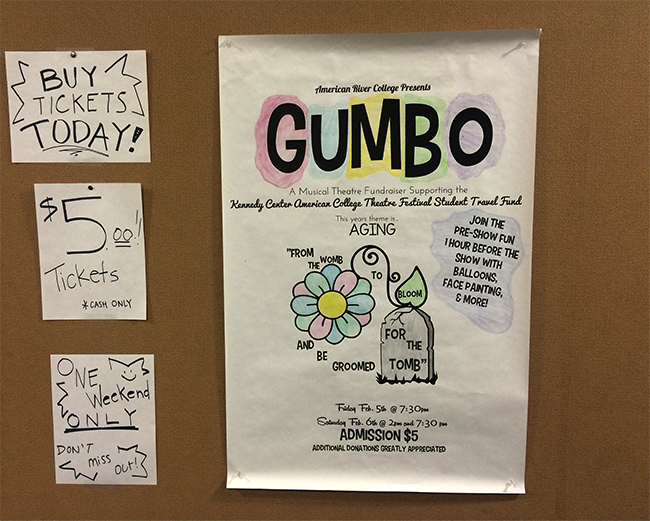 BUY
TICKETS
TODAY!
$5.00!!
Tickets
*CASH ONLY
ONE
Weekend
ONLY
DON'T
miss
out!
American River College Presents
GUMBO
A Musical Theatre Fundraiser Supporting the
Kennedy Center American College Theatre Festival Student Travel Fund
This years theme is..
AGING
"FROM
THE WOMB
TO
BLOOM
AND
BE
GROOMED
FOR
THE
TOMB"
JOIN THE
PRE-SHOW FUN
1 HOUR BEFORE THE
SHOW WITH
BALLOONS,
FACE PAINTING,
& MORE!
Friday Feb. 5th @ 7:30pm
Saturday Feb. 6th @ 2pm and 7:30 pm
ADMISSION $5
ADDITIONAL DONATIONS GREATLY APPRECIATED